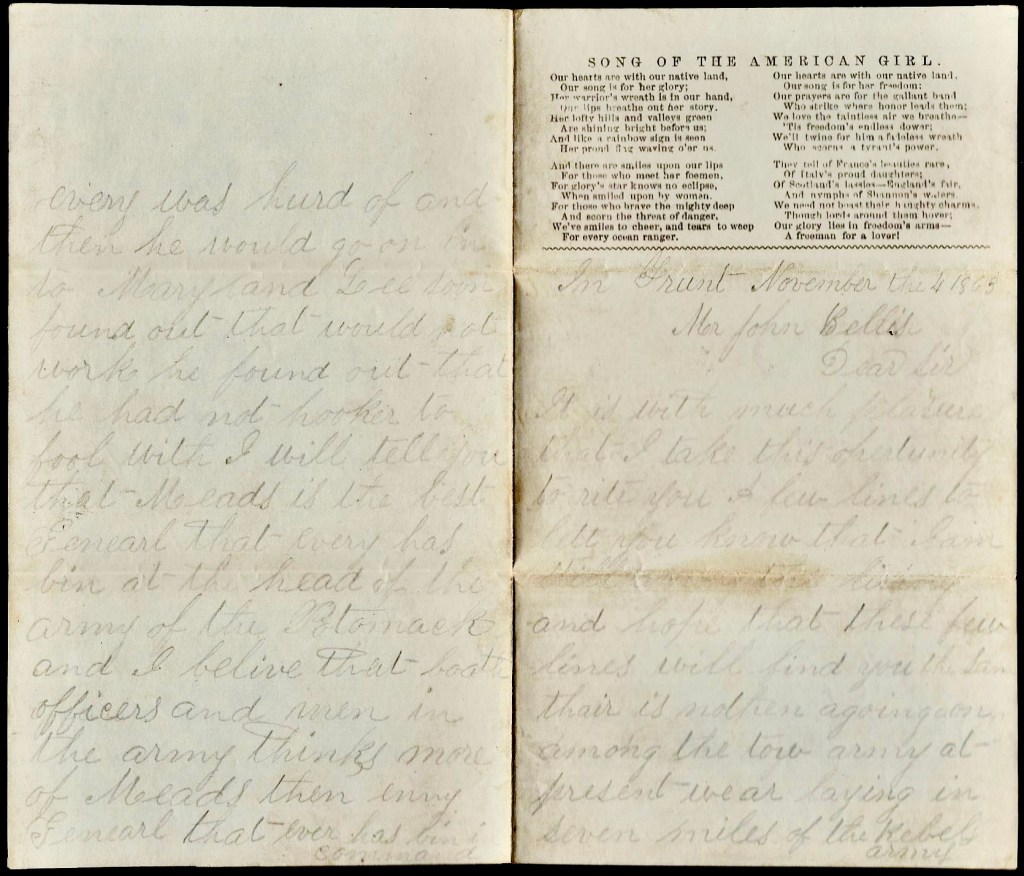 every was hurd of and
then he would go on in
to Maryland Lee soon
found out that would not
work he found out that
he had not hooker to
fool with I will tell you
that Meads is the best
Genearl that every has
bin at the head of the
army of the Potomack
and I belive that boath
officers and men in
the army thinks more
of Meads then enny
Genearl that ever has bin i
command
SONG OF THE AMERICAN GIRL.
Our hearts are with our native land,
Our song is for her glory;
Her warrior's wreath is in our hand,
Our lips breathe out her story.
Her lofty hills and valleys green
Are shining bright before us;
And like a rainbow sign is seen
Her proud flag waving o'er us.
And there are smiles upon our lips
For those who meet her foemen,
For glory's star knows no eclipse,
When smiled upon by women.
For those who brave the mighty deep
And scorn the threat of danger,
We've smiles to cheer, and tears to weep
For every ocean ranger.
Our hearts are with our native land,
Our song is for her freedom;
Our prayers are for the gallant band
Who strike where honor leads them;
We love the taintless air we breathe—
'Tis freedom's endless dower;
We'll twine for him a fadeless wreath
Who scorns a tyrant's power.
They tell of France's beauties rare,
Of Italy's proud daughters;
Of Scotland's lassies—England's fair,
And nymphs of Shannon's waters.
We need not boast their haughty charms,
Though lords around them hover;
Our glory lies in freedom's arms—
A freeman for a lover!
In Frunt November the 4 1863
Mr John Bellis
Dear Sir
It is with much plasure
that I take this opertunity
to rite you a few lines to
lett you know that I am
living
and hope that these few
lines will find you the sam
thair is nothen agoing on
among the tow army at
present wear laying in
seven miles of the Rebel
army